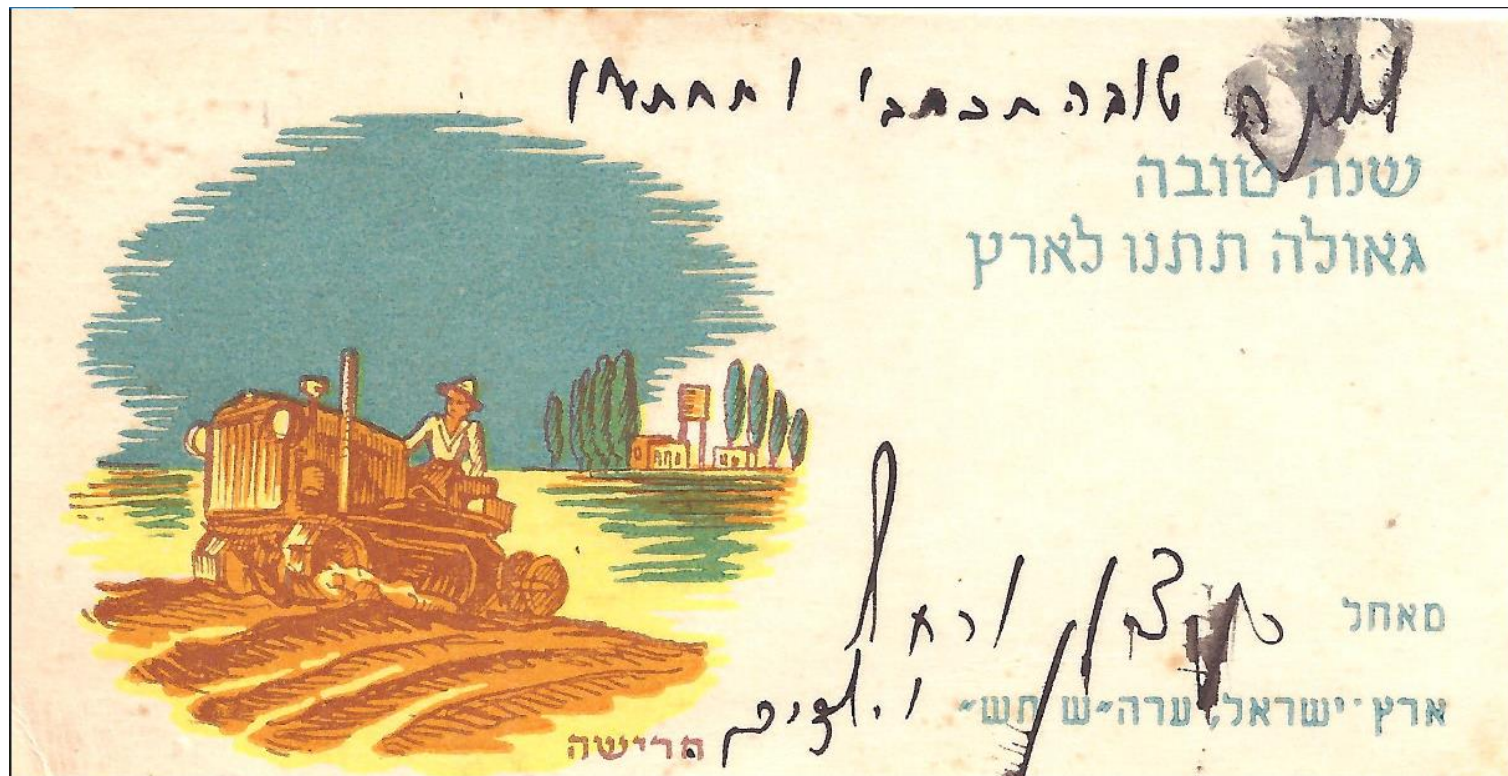 טובה תכתבי ותחתמי
שנה טובה
גאולה תתנו לארץ
מאחל
ורחל
וילדים
ארץ־ישראל, ערה״ש תש״
חרישה